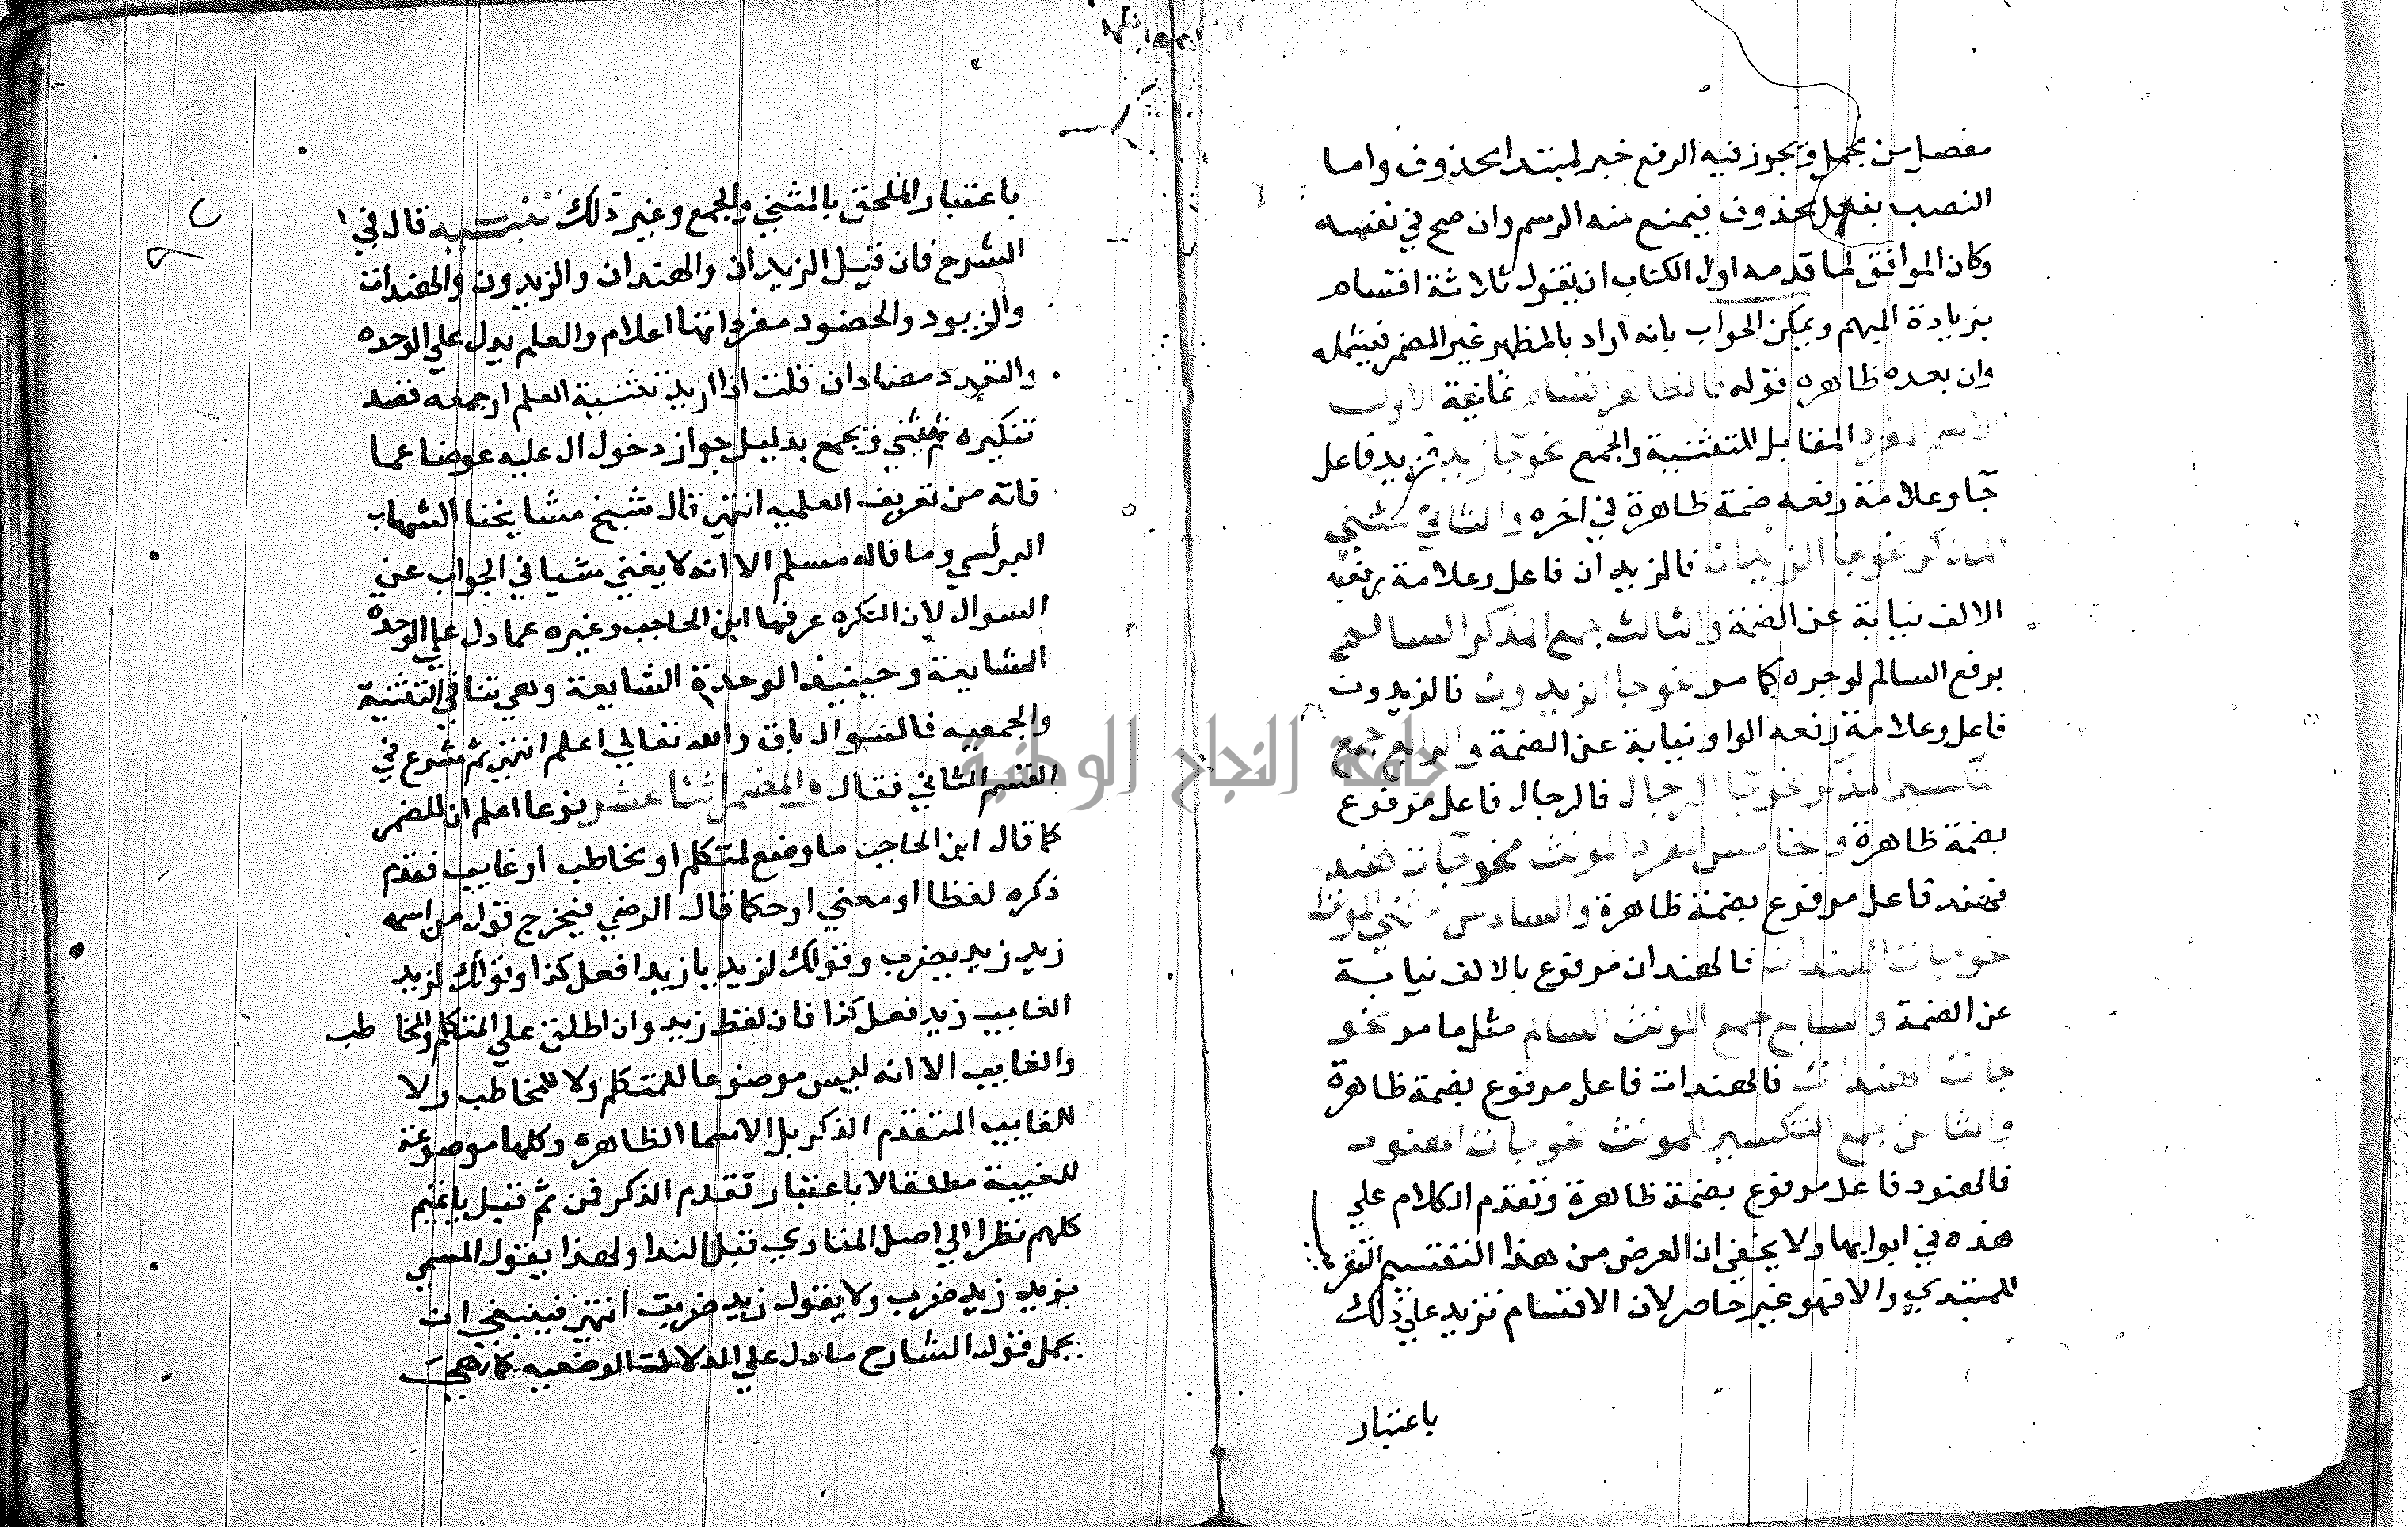 مفصل من مجمل ويجوز فيه الرفع خبر لمبتدا محذوف واما
النصب بفعل محذوف فيمنع منه الرسم وان صح في نفسه
وكان الموافق لما قدمه اول الكتاب ان يقول ثلاثة اقسام
بزيادة المبهم ويمكن الجواب بانه اراد بالمظهر غير المضمر فيشمله
وان بعده ظاهره قوله فالظاهر اقسام ثمانية الاول
الاسم المفرد المقابل للتثنية والجمع نحو جا زيد فزيد فاعل
جآ وعلامة رفعه ضمة ظاهرة في اخره والثاني مثني
المذكر نحو جا الزيدان فالزيدان فاعل وعلامة رفعه
الالف نيابة عن الضمة والثالث جمع المذكر السالم
برفع السالم لوجوه كما مر نحو جا الزيدون فالزيدون
فاعل وعلامة رفعه الواو نيابة عن الضمة والرابع جمع
تكسير المذكر نحو جا الرجال فالرجال فاعل مرفوع
بضمة ظاهرة والخامس مفرد المونث نحو جات هند
فهند فاعل مرفوع بضمة ظاهرة والسادس مثني المونث
نحو جات الهندان فالهندان مرفوع بالالف نيابة
عن الضمة والسابع جمع المونث السالم مثل ما مر نحو
جات الهندات فالهندات فاعل مرفوع بضمة ظاهرة
والثامن جمع التكسير المونث نحو جات الهنود
فالهنود فاعل مرفوع بضمة ظاهرة وتقدم الكلام علي
هذه في ابوابها ولا يخفي ان الغرض من هذا التقسيم
للمبتدي والا فهو غير حاصر لان الاقسام تزيد علي ذلك
باعتبار
باعتبار الملحق بالمثني والجمع وغير ذلك تنبيه قال في
الشرح فان قيل الزيدان والهندان والزيدون والهندات
والزيود والهنود مفرداتها اعلام والعلم يدل علي الوحده
والتعدد مضادان قلت اذا اريد تثنية العلم او جمعه قصد
تنكيره ثم يثني ويجمع بدليل جواز دخول ال عليه عوضا عما
فاته من تعريف العلميه انتهي قال شيخ مشايخنا الشهاب
البرلسي وما قاله مسلم الا انه لا يغني شيا في الجواب عن
السوال لان النكره عرفها ابن الحاجب وغيره عما دل علي الوحده
الشايعة وحينيذ الوحدة الشايعة في التثنية
والجمعيه فالسوال باق والله تعالي اعلم انتهي ثم شرع في
القسم الثاني فقال والمضمر اثنا عشر نوعا اعلم ان المضمر
كما قال ابن الحاجب ما وضع لمتكلم او مخاطب او غايب تقدم
ذكره لفظا او معني او حكما قال الرضي فيخرج قول من اسمه
زيد زيد يضرب وقولك لزيد يا زيد افعل كذا وقولك لزيد
الغايب زيد فعل كذا فان لفظ زيد وان اطلق علي المتكلم والمخاطب
والغايب الا انه ليس موضوعا للمتكلم ولا للمخاطب ولا
للغايب المتقدم الذكر بل الاسما الظاهره وكلها موضوعة
للغيبة مطلقا لا باعتبار تقدم الذكر فمن ثم قيل يا تميم
كلهم نظرا الي اصل المنادي قبل الندا ولهذا يقول المسمي
بزيد زيد ضرب ولا يقول زيد ضربت انتهي فينبغي ان
يحمل قول الشارح ما دل علي الدلالة الوضعيه كما هي
جامعة النجاح الوطنية